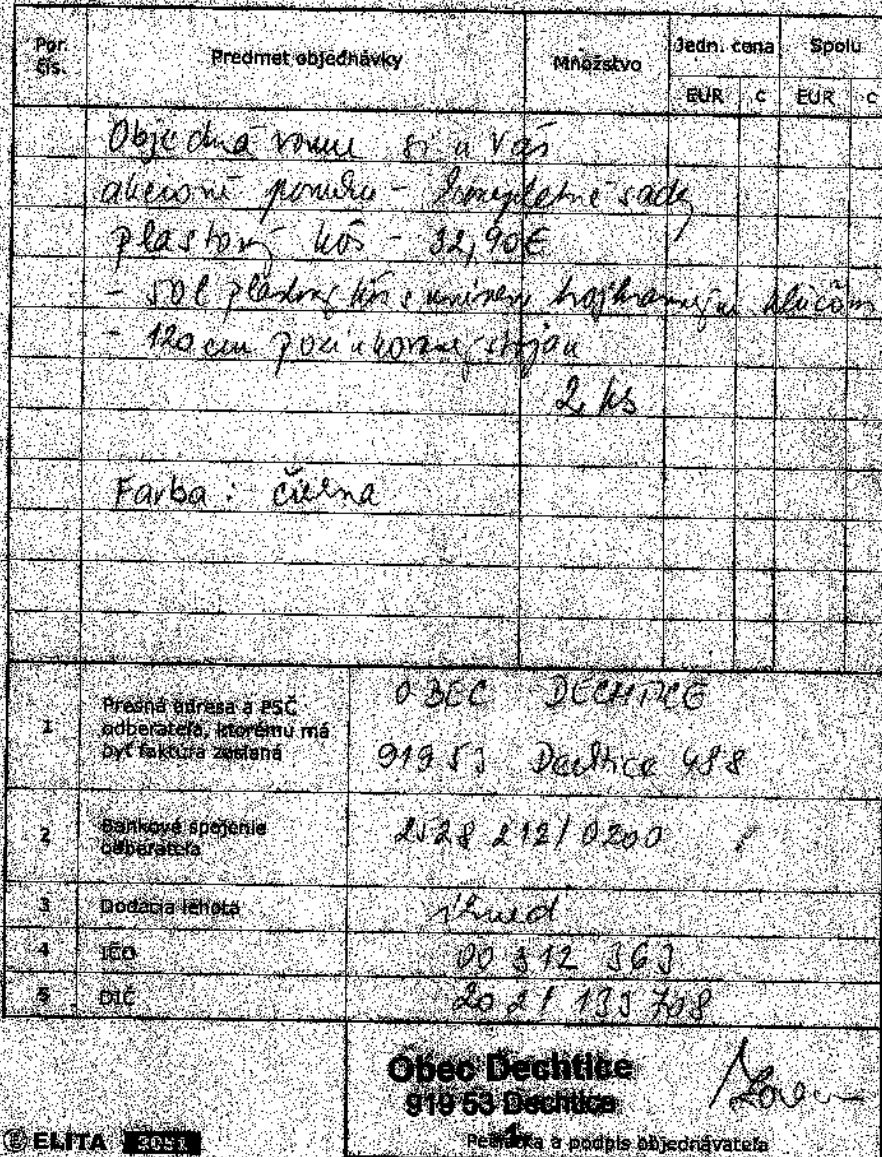 Por. čís.
Predmet objednávky
Množstvo
Jedn. cena
Spolu
EUR c EUR c
Objednávame si u Vás
akciovú ponuku - kompletné sady
plastový kôš - 32,90€
- 50l plastový kôš s trojhranným kľúčom
- 120 cm pozinkovaný stojan
2 ks
Farba: čierna
1 Presná adresa a PSČ odberateľa, ktorému má byť faktúra zaslaná
OBEC DECHTICE
919 53 Dechtice 488
2 Bankové spojenie odberateľa
2528 212/0200
3 Dodacia lehota
ihneď
4 IČO 00 312 363
5 DIČ 202 1 133 708
Obec Dechtice
919 53 Dechtice
Pečiatka a podpis objednávateľa
ELITA